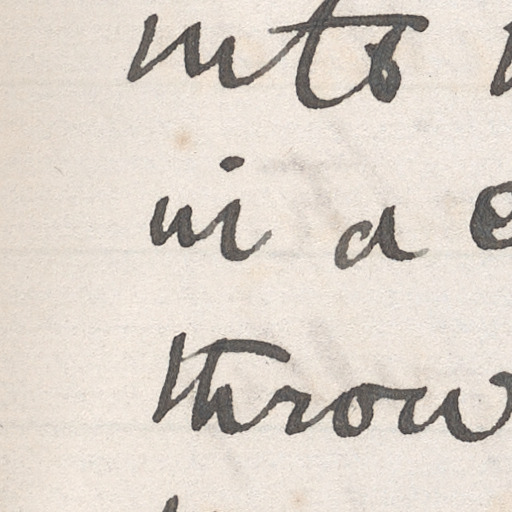 into
in a
throw